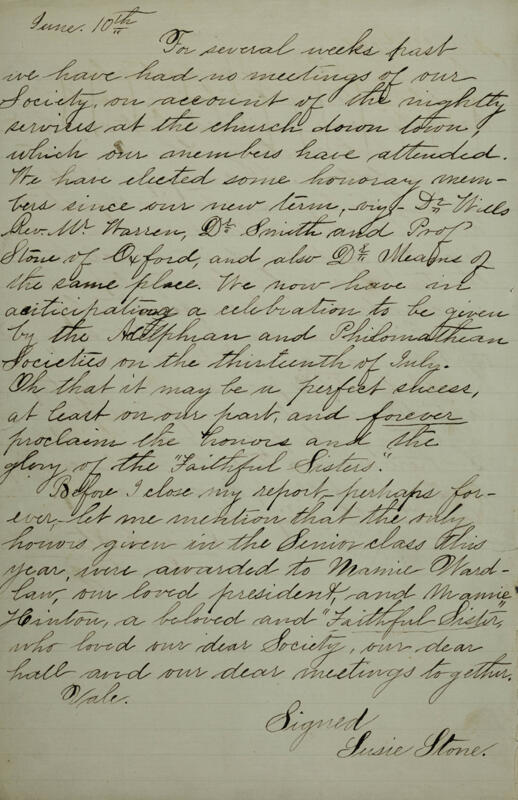 June. 10th
For several weeks past
we have had no meetings of our
Society, on account of the nightly
services at the church down town,
which our members have attended.
We have elected some honorary mem-
bers since our new term, viz- Dr Wills
Rev. Mr Warren, Dr Smith and Prof
Stone of Oxford, and also Dr Means of
the same place. We now have in
aciticipating a celebration to be given
by the Adelphian and Philomathean
Societies on the thirteenth of July.
Oh that it may be a perfect sucess,
at least on our part, and forever
proclaim the honors and the
glory of the "Faithful Sisters".
Before I close my report- perhaps for-
ever,- let me mention that the only
honors given in the Senior class this
year, were awarded to Mamie Ward-
law, our loved president, and Mamie
Hinton, a beloved and "Faithful Sister",
who loved our dear Society, our dear
hall and our dear meetings together.
Vale.
Signed
Susie Stone.